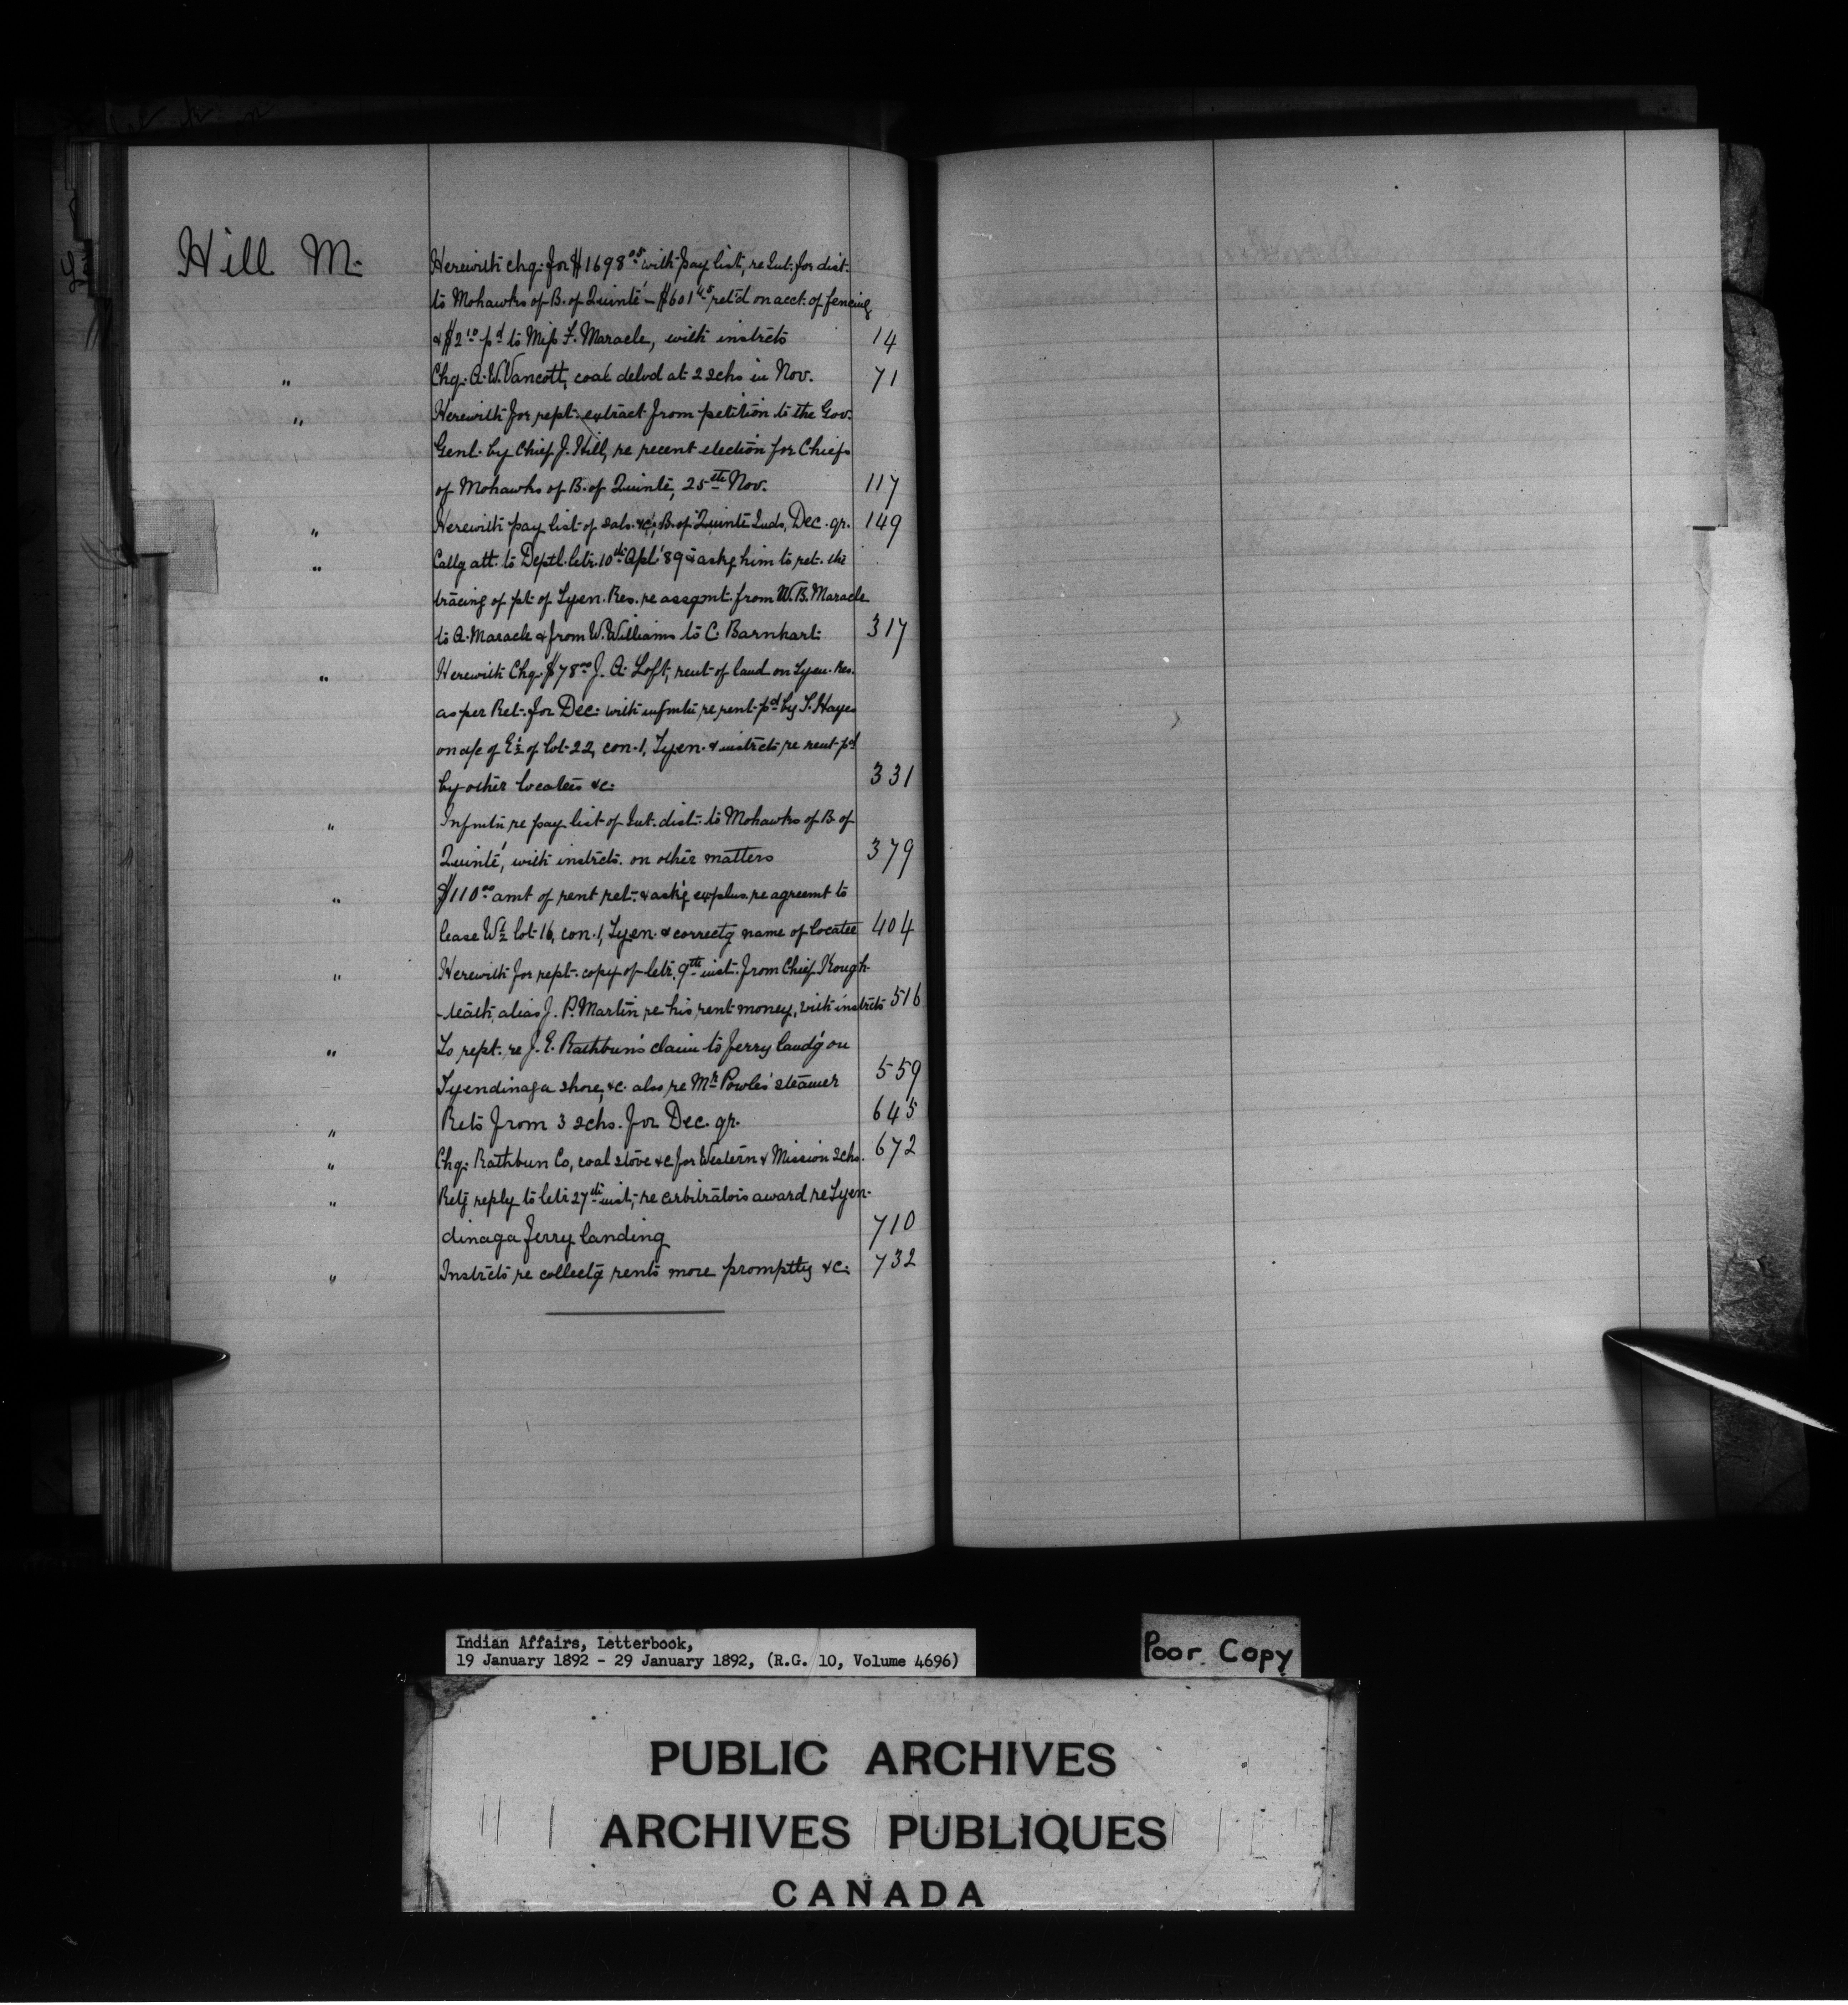 Hill M. Herewith chq. for $1698.05 with pay list, re Int. for dist.
to Mohawks of B. of Quinté – $601.45 ret'd on acct. of fencing
& $2.10 pd to Miss F. Maracle, with instrcts 14
" Chq. A. W. Vancott, coal delvd at 2 schs in Nov. 71
" Herewith for rept. extract from petition to the Gov.
Genl. by Chief J. Hill, re recent election for Chiefs
of Mohawks of B. of Quinté, 25th Nov. 117
" Herewith pay list of sals. &c, B. of Quinté Inds, Dec. qr. 149
" Callg att. to Deptl. letr. 10th Apl. '89 & askg him to ret. the
tracing of pt of Tyen. Res. re assgmt. from W. B. Maracle
to A. Maracle & from W. Williams to C. Barnhart. 317
" Herewith Chq. $78.00 J. A. Loft, rent of land on Tyen. Res.
as per Ret. for Dec. with infmtn re rent pd by T. Hayes
on a/c of E½ of lot 22, con. 1, Tyen. & instrcts re rent pd
by other locatees &c. 331
" Infmtn re pay list of Int. dist. to Mohawks of B. of
Quinté, with instrcts. on other matters 379
" $110.00 amt of rent ret. & ask'g explns. re agreemt to
lease W½ lot 16, con. 1, Tyen. & correctg name of locatee 404
" Herewith for rept. copy of letr. 9th inst. from Chief
alias J. P. Martin re his rent money, with instrcts 516
" To rept. re J. E. Rathbun's claim to ferry land'g on
Tyendinaga shore, &c. also re Mr. Powles' steamer 559
" Rets from 3 schs. for Dec. qr. 645
" Chq. Rathbun Co, coal stove &c for Western & Mission schs. 672
" Retg reply to letr 27th inst, re arbitrators award re Tyen-
dinaga ferry landing 710
" Instrcts re collectg rents more promptly &c. 732
Indian Affairs, Letterbook,
19 January 1892 - 29 January 1892, (R.G. 10, Volume 4696)
Poor Copy
PUBLIC ARCHIVES
ARCHIVES PUBLIQUES
CANADA